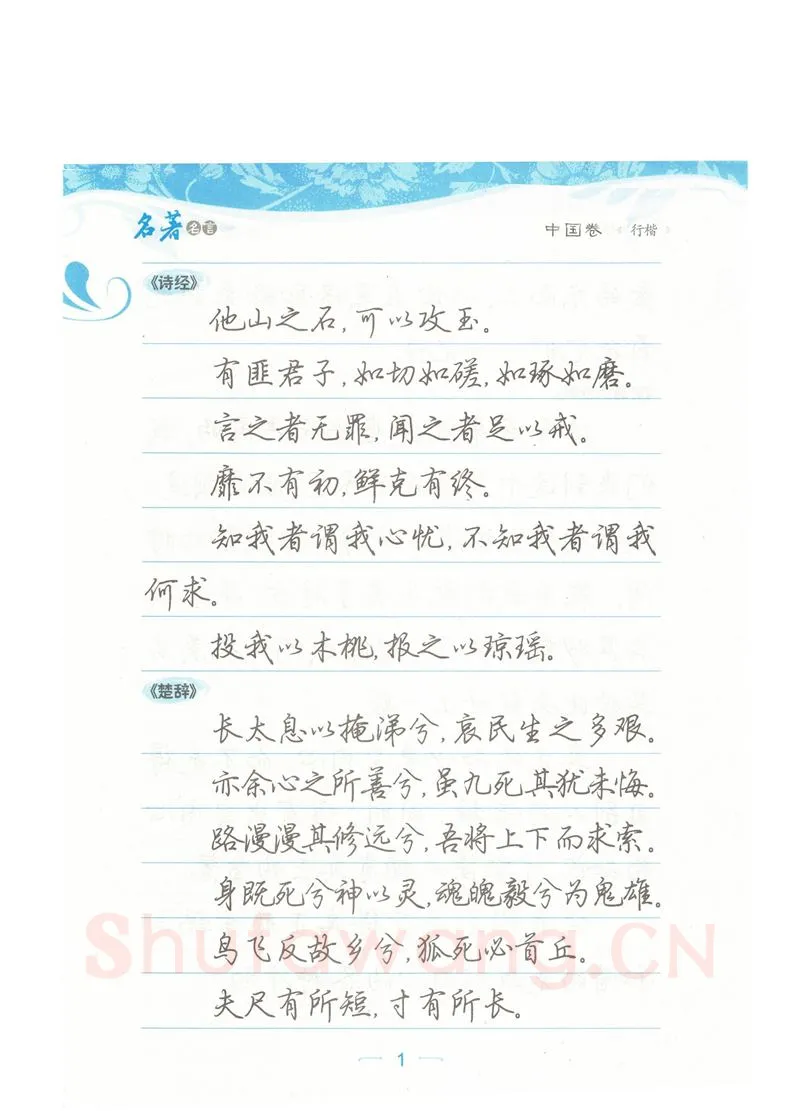 名著名言
中国卷 行楷
《诗经》
他山之石，可以攻玉。
有匪君子，如切如磋，如琢如磨。
言之者无罪，闻之者足以戒。
靡不有初，鲜克有终。
知我者谓我心忧，不知我者谓我
何求。
投我以木桃，报之以琼瑶。
《楚辞》
长太息以掩涕兮，哀民生之多艰。
亦余心之所善兮，虽九死其犹未悔。
路漫漫其修远兮，吾将上下而求索。
身既死兮神以灵，魂魄毅兮为鬼雄。
鸟飞反故乡兮，狐死必首丘。
夫尺有所短，寸有所长。
Shufawang.CN
1